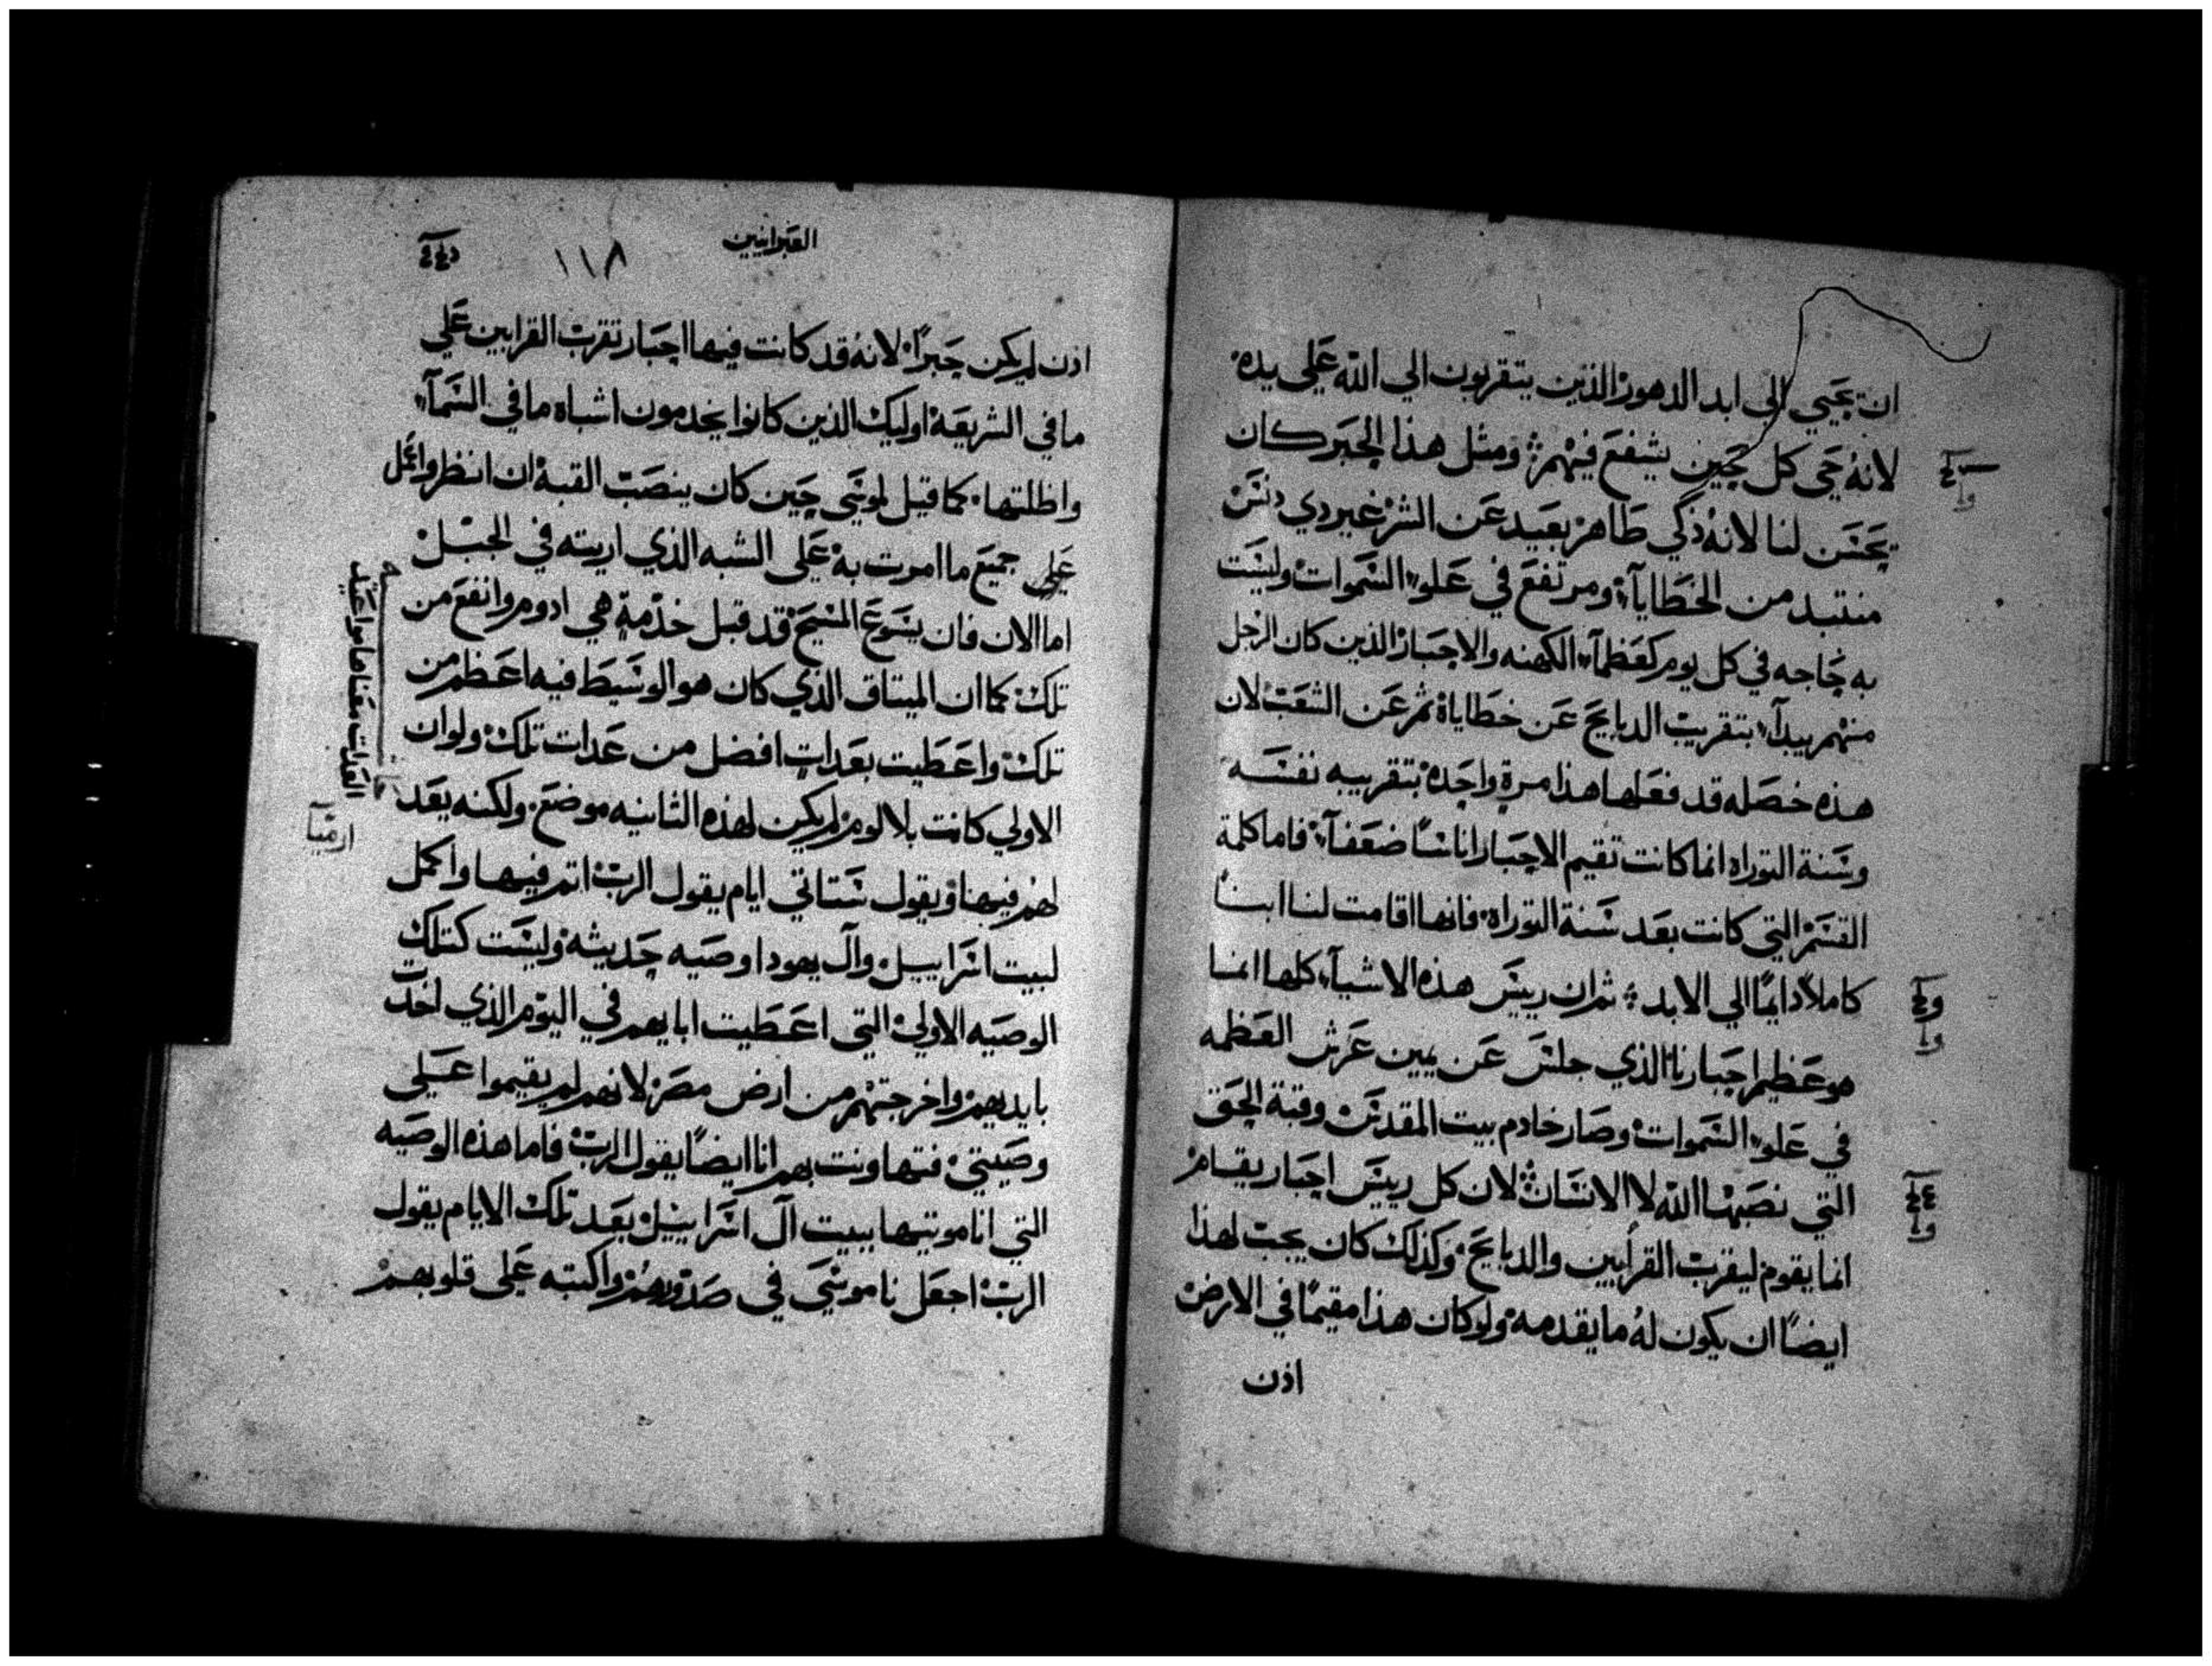 ان يحيي الى ابد الدهور الذين يتقربون الي الله علي يده
لانه حي كل حين يشفع فيهم ومثل هذا الحبر كان
يحسن لنا لانه زكي طاهر بعيد عن الشر غير ردي دنس
منتبد من الخطايا ومرتفع في علو السموات وليست
به حاجه في كل يوم كعظما الكهنه والاحبار الذين كان الرجل
منهم يبدا بتقريب الدبايح عن خطاياه ثم عن الشعب لان
هذه خصله قد فعلها هذا مرة واحده بتقريبه نفسه
وسنة التوراه انما كانت تقيم الاحبار اناسا ضعفا فاما كلمة
القسم التي كانت بعد سنة التوراه فانها اقامت لنا ابنا
كاملا دايما الي الابد ثم ان رييس هذه الاشيا كلها انما
هو عظيم احبارنا الذي جلس عن يمين عرش العظمه
في علو السموات وصار خادم بيت المقدس وقبة الحق
التي نصبها الله لا الانسان لان كل رييس احبار يقام
انما يقوم ليقرب القرابين والدبايح وكذلك كان يجب لهذا
ايضا ان يكون له ما يقدمه ولو كان هذا مقيما في الارض
اذن
العبرانيين
١١٨
اذن لم يكن حبرا لانه قد كانت فيها احبار تقرب القرابين علي
ما في الشريعة اوليك الذين كانوا يخدمون اشباه ما في السما
واظلتها كما قيل لموسي حين كان ينصب القبة ان انظر واعمل
علي جميع ما امرت به علي الشبه الذي اريته في الجبل
اما الان فان يسوع المسيح قد قبل خدمة هي ادوم وانفع من
تلك كما ان الميتاق الذي كان هو الوسيط فيه اعظم من
تلك واعطيت بعدات افضل من عدات تلك ولو ان
الاولي كانت بلا لوم لم يكن لهذه الثانيه موضع ولكنه يعد
لهم فيها ويقول ستاتي ايام يقول الرب اتم فيها واكمل
لبيت اسراييل وآل يهودا وصيه حديثه وليست كتلك
الوصيه الاولي التي اعطيت ابايهم في اليوم الذي اخدت
بايديهم واخرجتهم من ارض مصر لانهم لم يقيموا علي
وصيتي فتهاونت بهم انا ايضا يقول الرب فاما هذه الوصيه
التي انا موتيها بيت آل اسراييل بعد تلك الايام يقول
الرب اجعل ناموسي في صدورهم واكتبه علي قلوبهم
العدات معناها مواعيد
ارميا